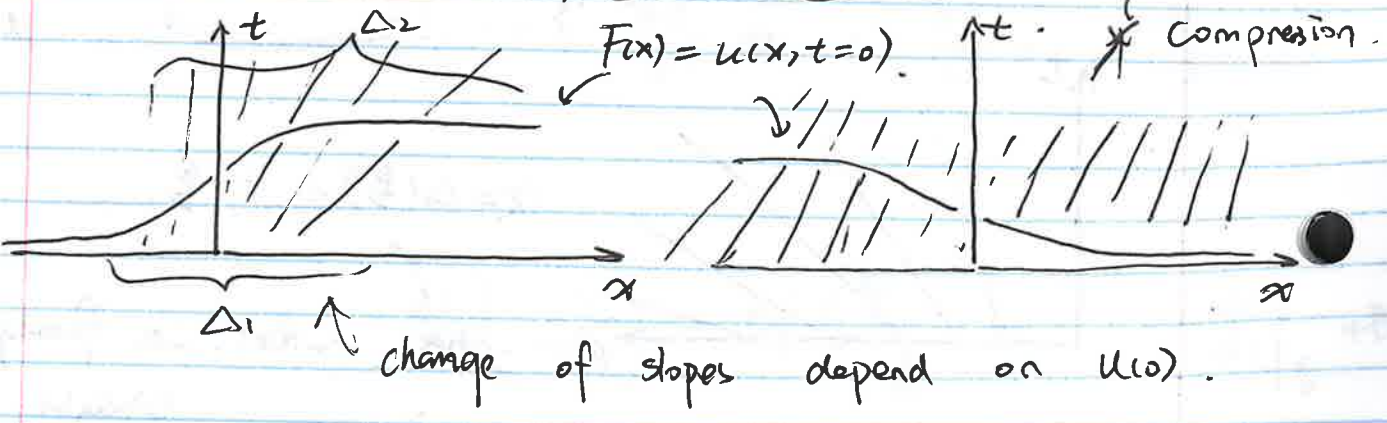 t Δ2 F(x) = u(x, t=0). t. compression.
x x
Δ1
change of slopes depend on u(0).